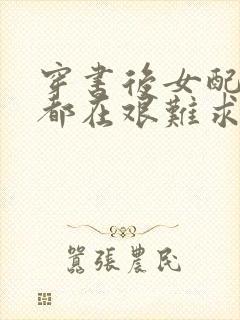 穿書後女配
都在艱難求
囂張農民